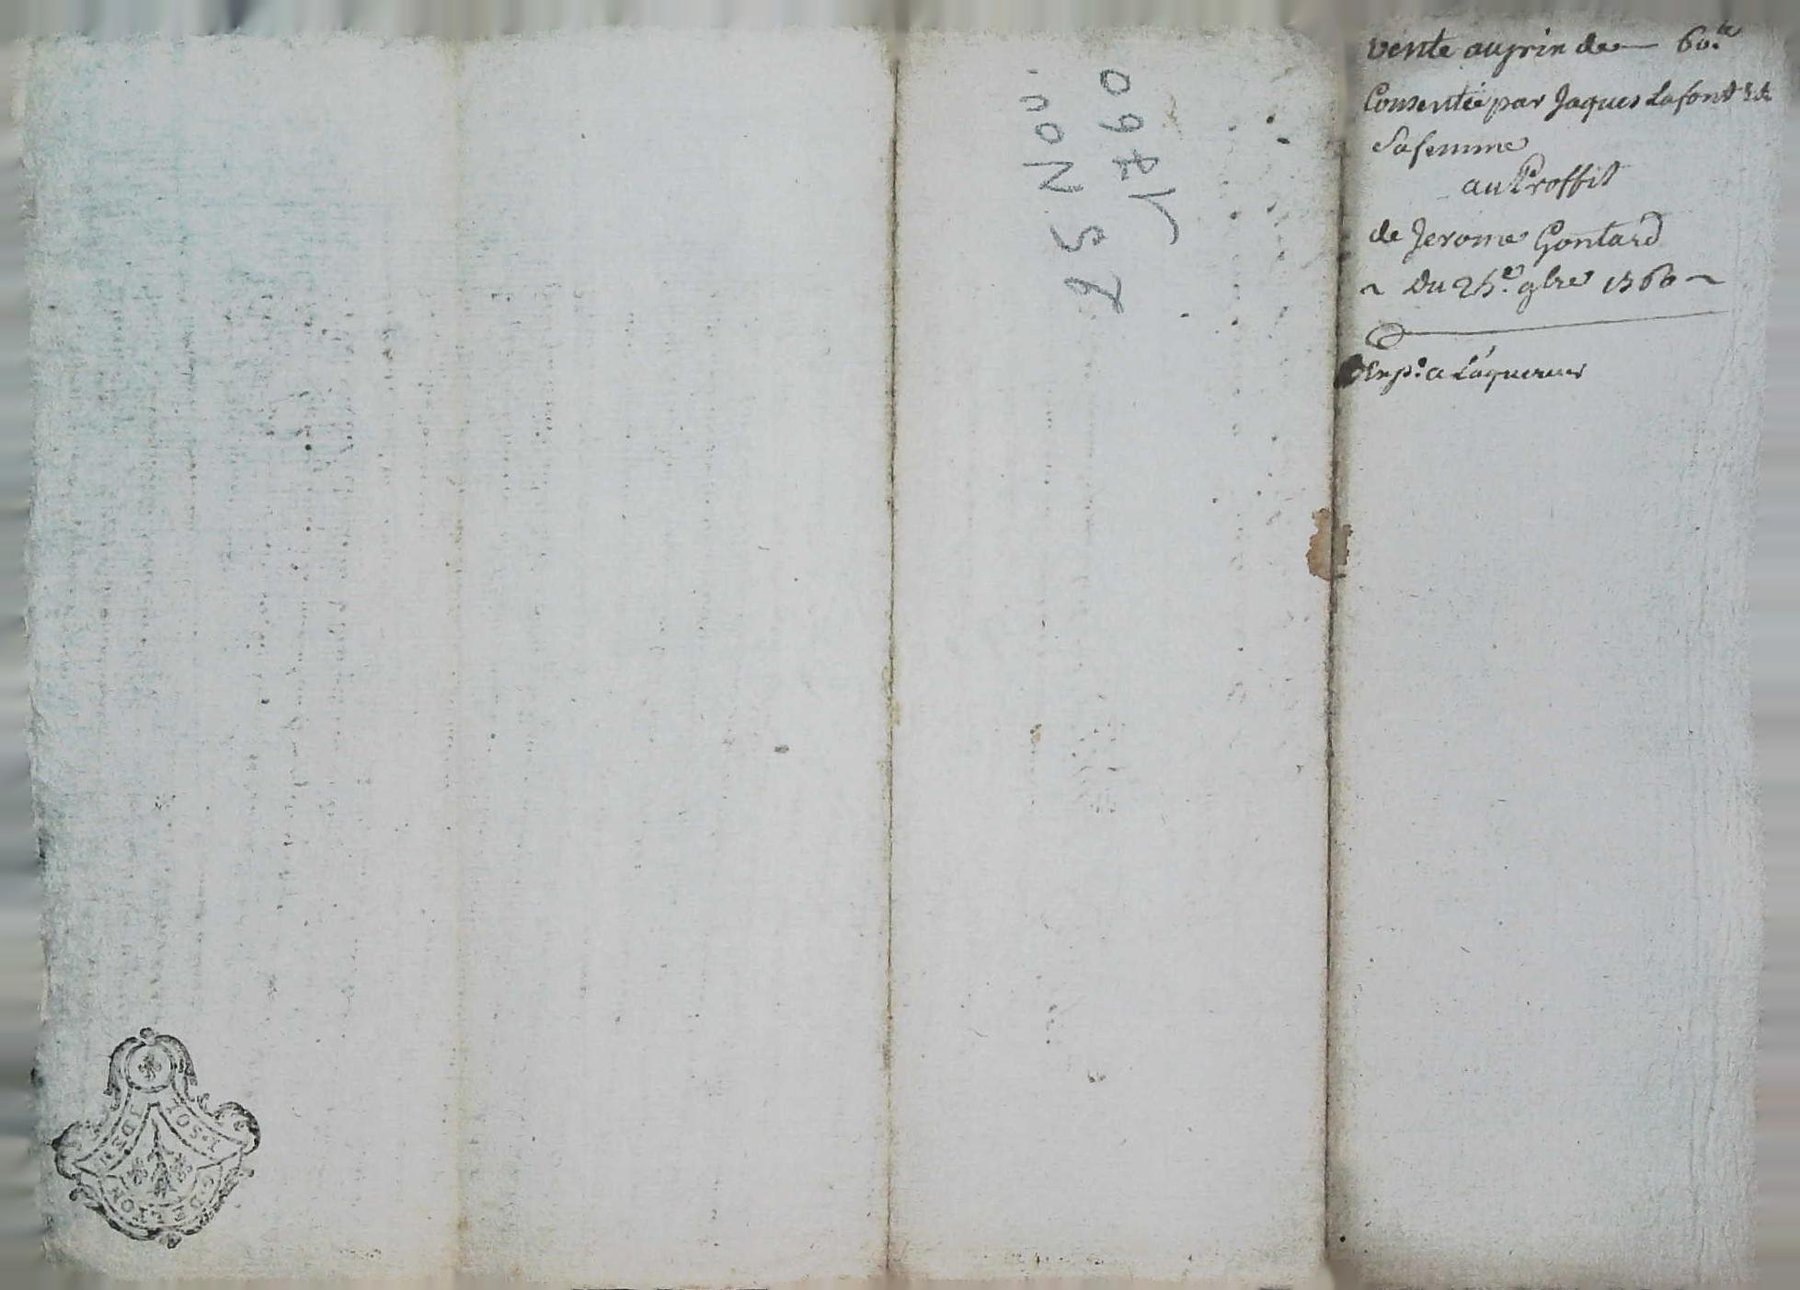 vente auprix de — 60.#
Consentie par Jaques Lafond & de
Sa femme
au Proffit
de Jerome Gontard
~ du 25.e 9bre 1760 ~
Exp.n a L'aquereur
1760
25 Nov.
1.SOL
G.DE LYON